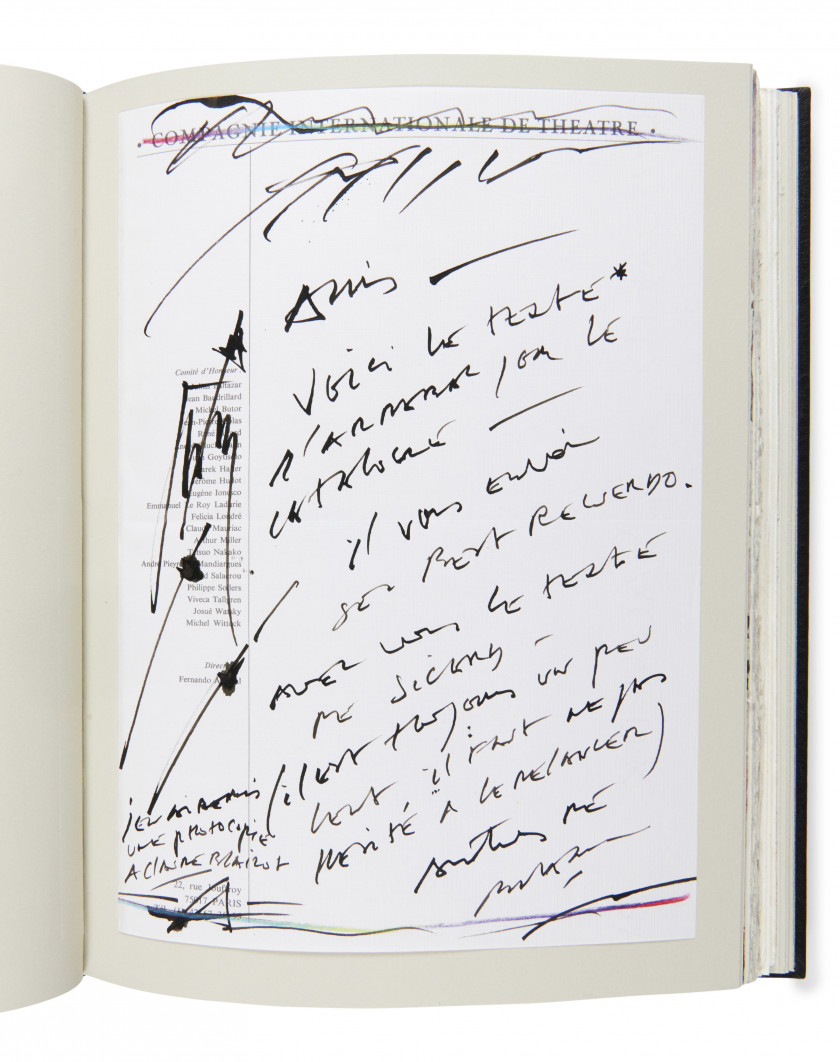 • COMPAGNIE INTERNATIONALE DE THEATRE •
Amis —
Voici le texte*
d'ARRABAL pour le
catalogue —
il vous envoie
ses best recuerdo.
Avez vous le texte
de Sicard —
(il est toujours un peu
lent, il faut ne pas
hésité à le relancer)
amitiés de
j'en ai remis
une photocopie
A Claude Blaizot
Comité d'Honneur
Baltazar
Jean Baudrillard
Michel Butor
René
Goytisolo
Marek Halter
Jérôme Hullot
Eugène Ionesco
Emmanuel Le Roy Ladurie
Felicia Londré
Claude Mauriac
Arthur Miller
Tetsuo Nakako
André Pieyre Mandiargues
Salacrou
Philippe Sollers
Viveca Tallgren
Josué Wansky
Michel Wittock
Fernando
22, rue Jouffroy
75017 PARIS